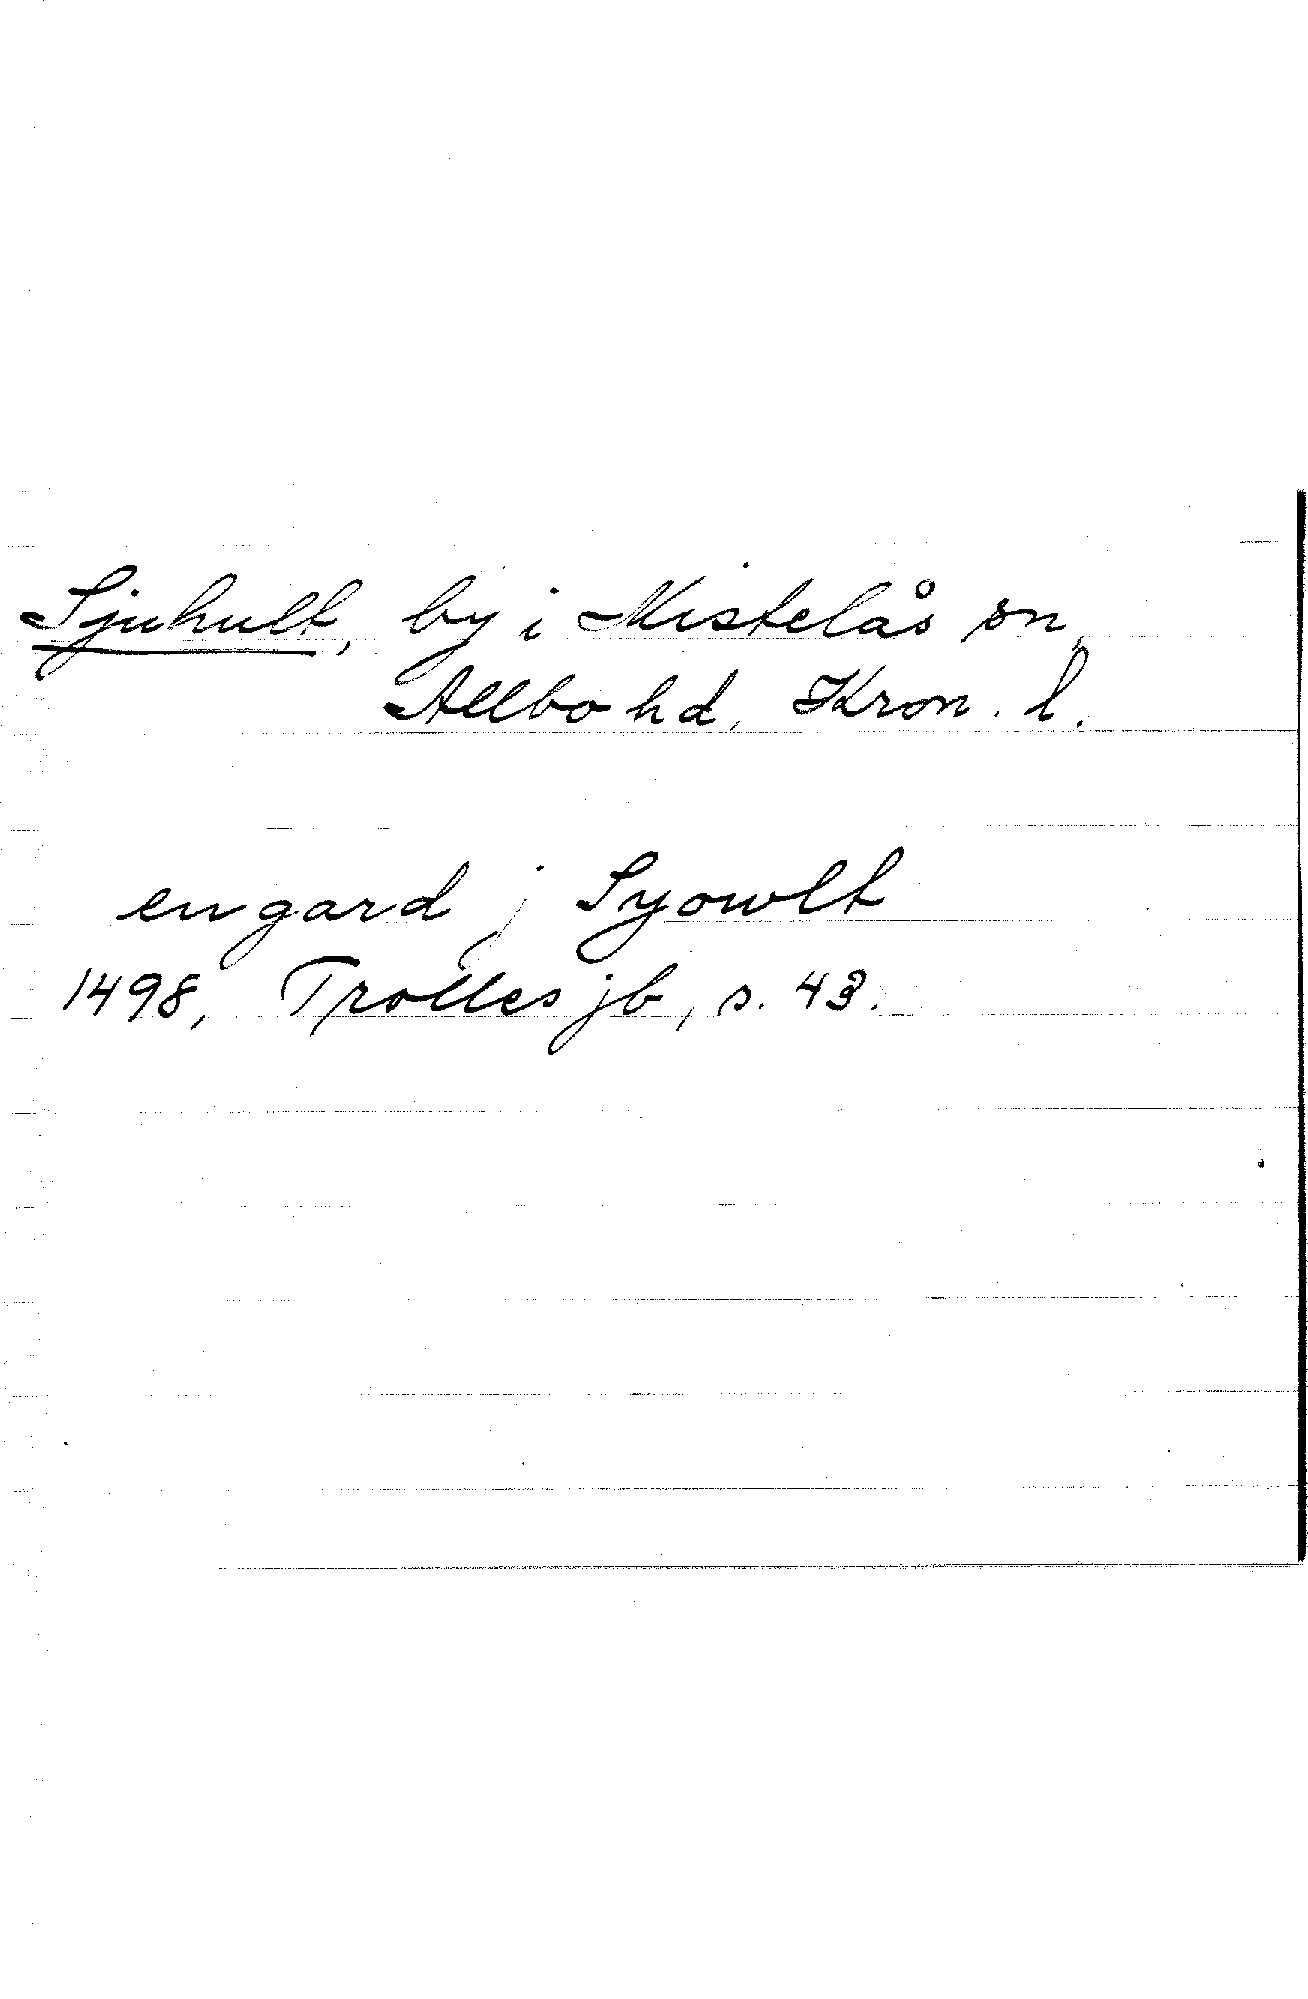 Sjuhult, by i Mistelås sn,
Allbo hd, Kron. l.
en gard j Syowlt
1498, Trolles jb, s. 43.